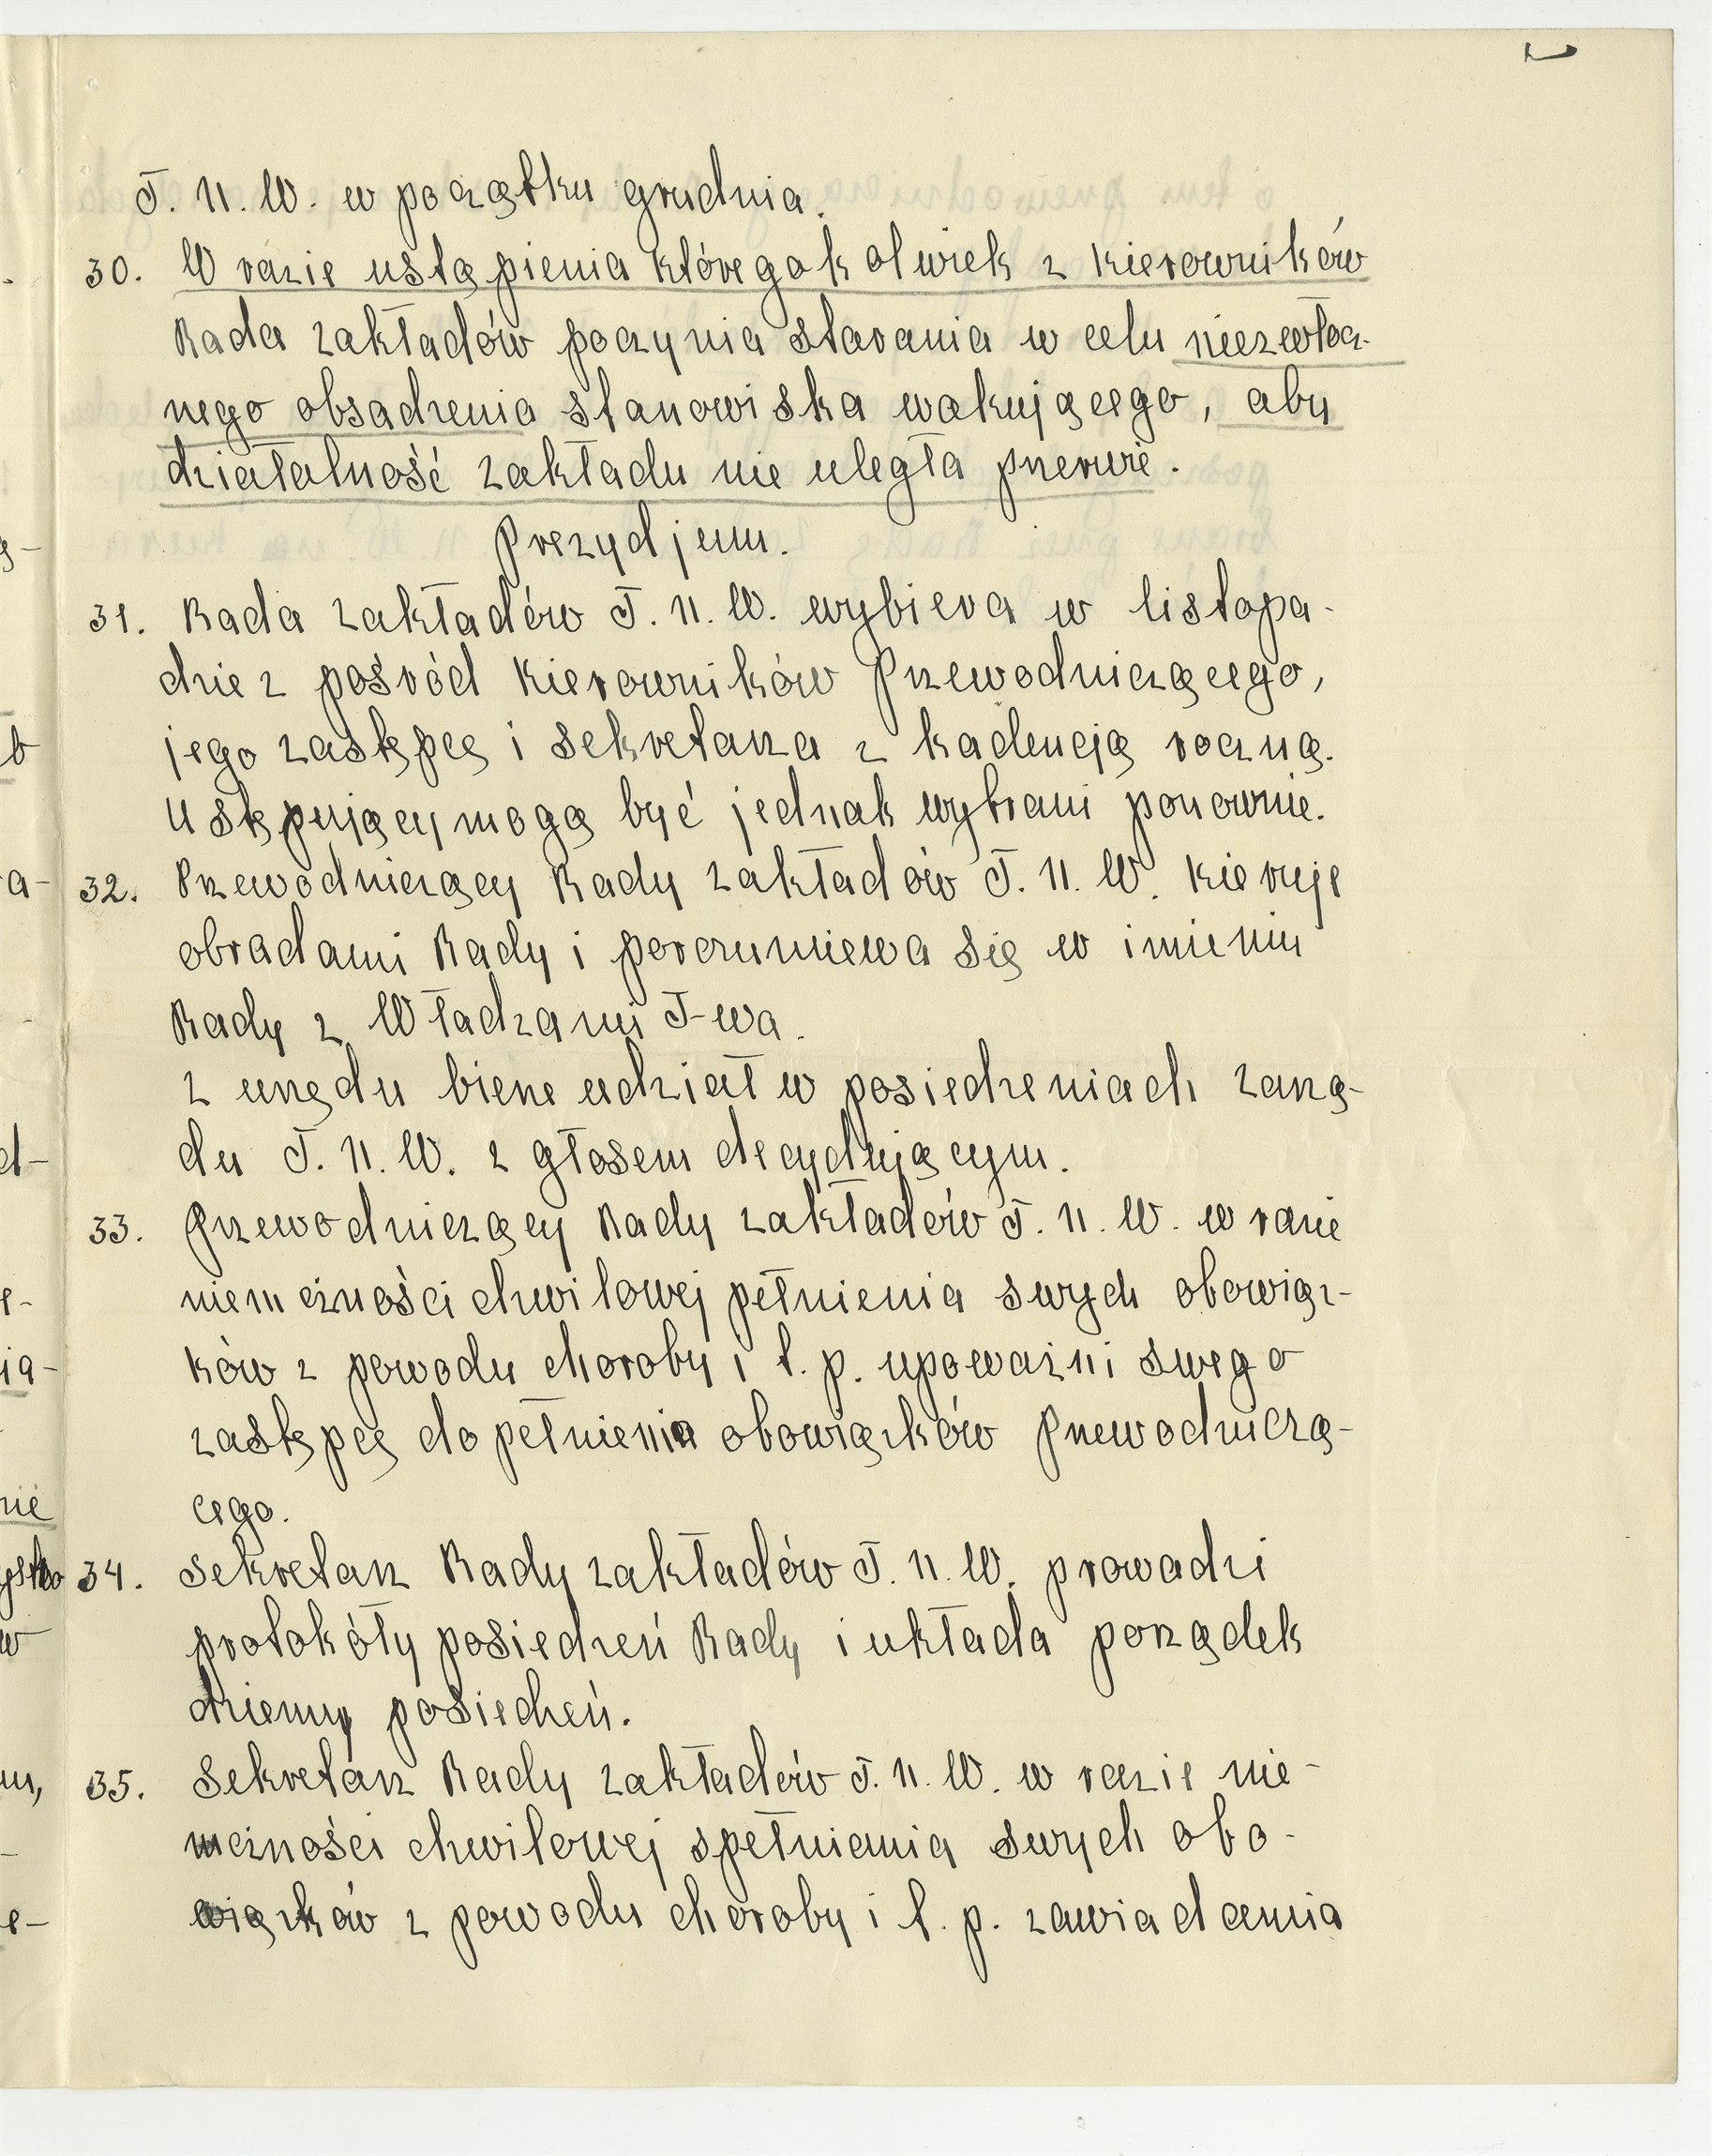 T. N. W. w początku grudnia.
30. W razie ustąpienia któregokolwiek z kierowników
Rada zakładów poczynia starania w celu niezwłocz-
nego obsadzenia stanowiska wakującego, aby
działalność zakładu nie uległa przerwie.
Prezydjum.
31. Rada zakładów T. N. W. wybiera w listopa-
dzie z pośród kierowników Przewodniczącego,
jego zastępcę i sekretarza z kadencją roczną.
Ustępujący mogą być jednak wybrani ponownie.
32. Przewodniczący Rady zakładów T. N. W. kieruje
obradami Rady i porozumiewa się w imieniu
Rady z Władzami T-wa.
Z urzędu bierze udział w posiedzeniach Zarzą-
du T. N. W. z głosem decydującym.
33. Przewodniczący Rady zakładów T. N. W. w razie
niemożności chwilowej pełnienia swych obowiąz-
ków z powodu choroby i t. p. upoważni swego
zastępcę do pełnienia obowiązków Przewodniczą-
cego.
34. Sekretarz Rady zakładów T. N. W. prowadzi
protokóły posiedzeń Rady i układa porządek
dzienny posiedzeń.
35. Sekretarz Rady zakładów T. N. W. w razie nie-
możności chwilowej spełniania swych obo-
wiązków z powodu choroby i t. p. zawiadamia